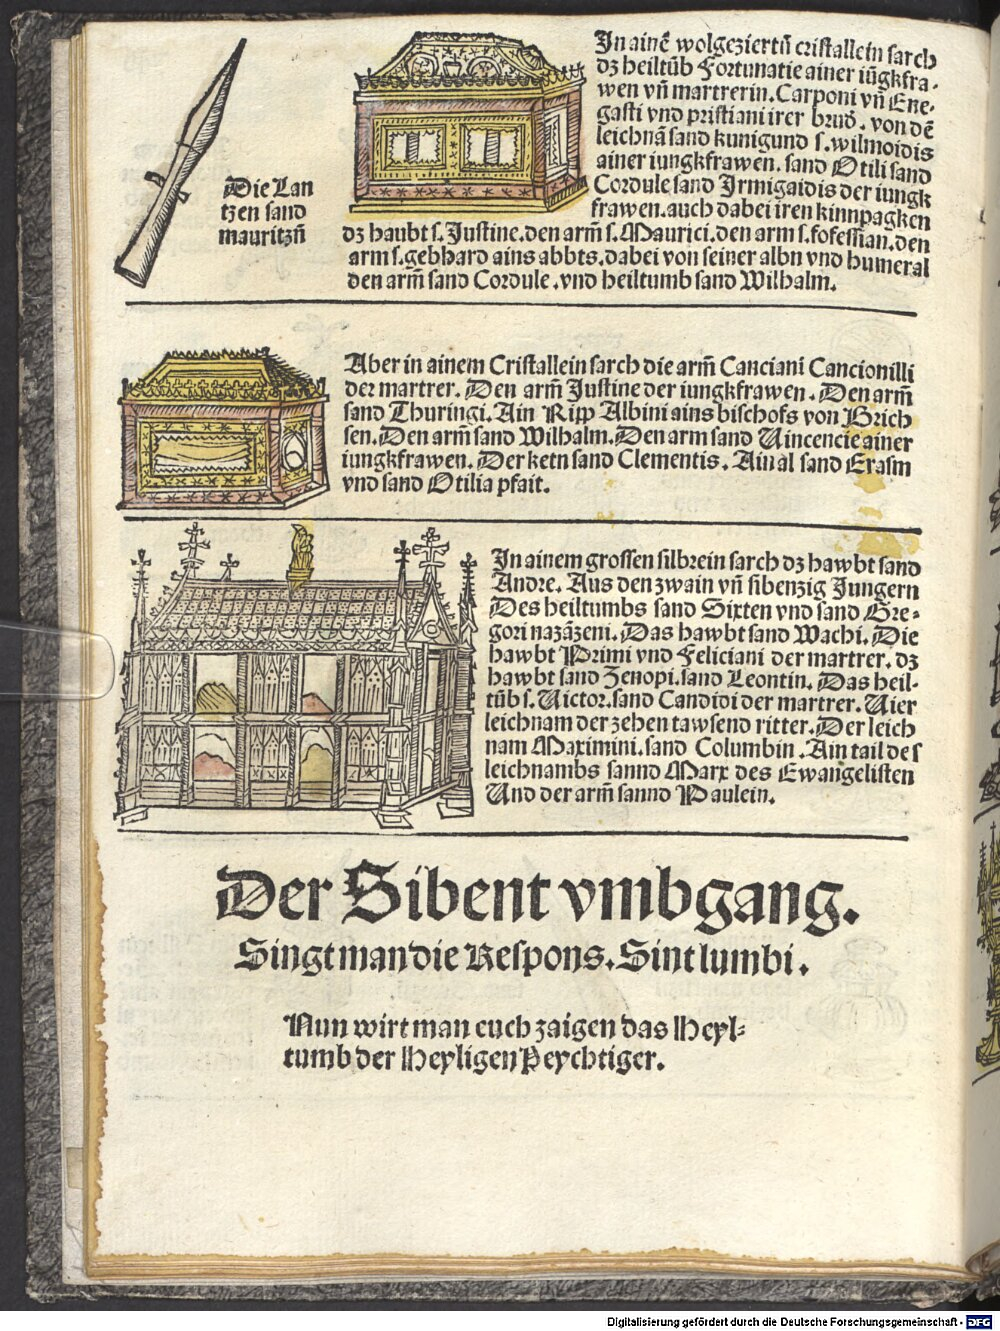 Die Lan
tzen sand
mauritzñ
In ainē wolgeziertñ cristallein sarch
dz heiltūb Fortunatie ainer iūgkfra-
wen vñ martrerin. Carponi vñ Ene-
gasti vnd pristiani irer brud. von dē
leichnā sand kunigund s. wilmoidis
ainer iungkfrawen. sand Otili sand
Cordule sand Irmigaidis der iungk
frawen. auch dabei iren kinnpagken
dz haubt s. Justine. den arm̄ s. Maurici. den arm s. fofem̄an. den
arm s. gebhard ains abbts. dabei von seiner albn vnd humeral
den arm̄ sand Cordule. vnd heiltumb sand Wilhalm.
Aber in ainem Cristallein sarch die arm̄ Canciani Cancionilli
der martrer. Den arm̄ Justine der iungkfrawen. Den arm̄
sand Thuringi. Ain Ripp Albini ains bischofs von Brich
sen. Den arm̄ sand Wilhalm. Den arm sand Vincencie ainer
iungkfrawen. Der ketn sand Clementis. Ain al sand Erasm
vnd sand Otilia pfait.
In ainem grossen silbrein sarch dz hawbt sand
Andre. Aus den zwain vñ sibenzig Jungern
Des heiltumbs sand Sixten vnd sand Gre-
gori nazāzeni. Das hawbt sand Wachi. Die
hawbt Primi vnd Feliciani der martrer. dz
hawbt sand Zenopi. sand Leontin. Das heil-
tūb s. Victor. sand Candidi der martrer. Vier
leichnam der zehen tawsend ritter. Der leich
nam Maximini. sand Columbin. Ain tail des
leichnambs sannd Marx des Ewangelisten
Und der arm̄ sannd Paulein.
Der Sibent vmbgang.
Singt man die Respons. Sint lumbi.
Nun wirt man euch zaigen das Heyl-
tumb der Heyligen Peychtiger.
Digitalisierung gefördert durch die Deutsche Forschungsgemeinschaft - DFG